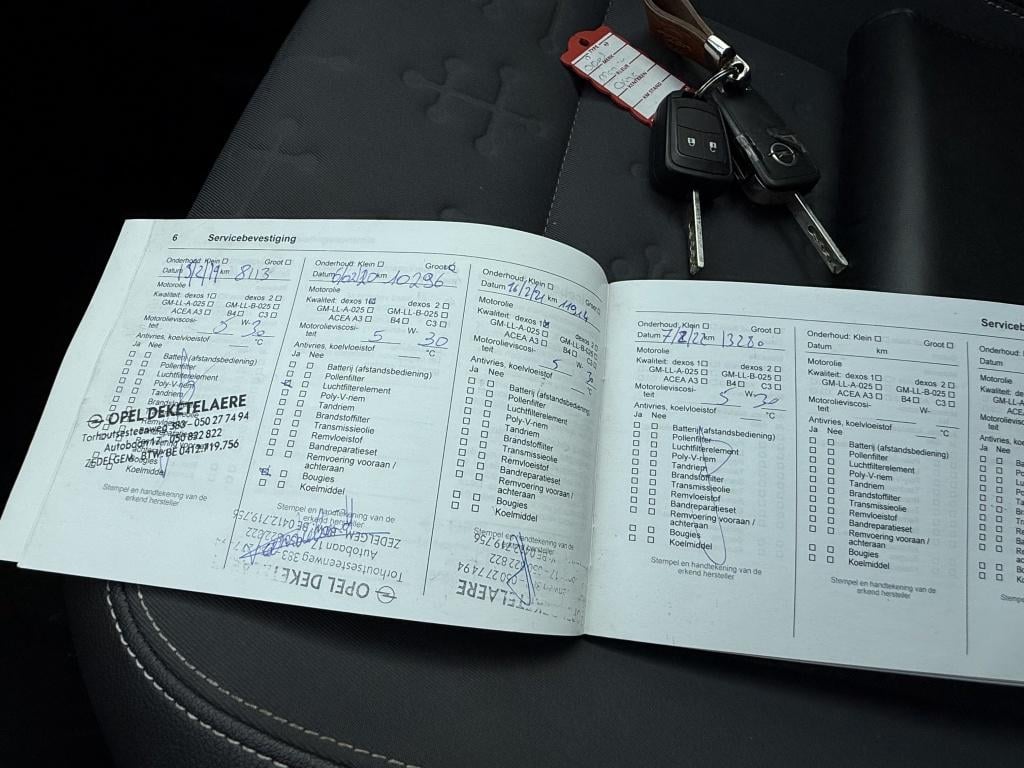 TYPE
Opel
MERK
KLEUR
KENTEKEN
KM STAND
6 Servicebevestiging
Onderhoud: Klein ☐ Groot ☐
Datum 13/2/19 km 8113
Motorolie
Kwaliteit: dexos 1 ☐ dexos 2 ☐
GM-LL-A-025 ☐ GM-LL-B-025 ☐
ACEA A3 ☐ B4 ☐ C3 ☐
Motorolieviscosi-
teit 5 W- 30
Antivries, koelvloeistof °C
Ja Nee
☐ ☐ Batterij (afstandsbediening)
☐ ☐ Pollenfilter
☐ ☐ Luchtfilterelement
☐ ☐ Poly-V-riem
☐ ☐ Tandriem
OPEL DEKETELAERE
Torhoutsesteenweg 383 - 050 27 74 94
Autobaan 17 - 050 822 822
ZEDELGEM BTW: BE 0412.719.756
Bougies
Koelmiddel
Stempel en handtekening van de
erkend hersteller
Onderhoud: Klein ☐ Groot ☑
Datum 6/02/20 km 10296
Motorolie
Kwaliteit: dexos 1 ☑ dexos 2 ☐
GM-LL-A-025 ☐ GM-LL-B-025 ☐
ACEA A3 ☐ B4 ☐ C3 ☐
Motorolieviscosi-
teit 5 W- 30
Antivries, koelvloeistof °C
Ja Nee
☐ ☐ Batterij (afstandsbediening)
☐ ☐ Pollenfilter
☑ ☐ Luchtfilterelement
☐ ☐ Poly-V-riem
☐ ☐ Tandriem
☐ ☐ Brandstoffilter
☐ ☐ Transmissieolie
☐ ☐ Remvloeistof
☐ ☐ Bandreparatieset
☐ ☐ Remvoering vooraan /
achteraan
☑ ☐ Bougies
☐ ☐ Koelmiddel
Stempel en handtekening van de
erkend hersteller
OPEL DEKE
Torhoutsesteenweg 383
Autobaan 17
ZEDELGEM
BE 0412.719.756
Onderhoud: Klein ☐ Groot
Datum 16/2/21 km 11914
Motorolie
Kwaliteit: dexos 1 ☑ dexos 2 ☐
GM-LL-A-025 ☐ GM-LL-B-025 ☐
ACEA A3 ☐ B4 ☐ C3 ☐
Motorolieviscosi-
teit 5 W- 30
Antivries, koelvloeistof °C
Ja Nee
☐ ☐ Batterij (afstandsbediening)
☐ ☐ Pollenfilter
☐ ☐ Luchtfilterelement
☐ ☐ Poly-V-riem
☐ ☐ Tandriem
☐ ☐ Brandstoffilter
☐ ☐ Transmissieolie
☐ ☐ Remvloeistof
☐ ☐ Bandreparatieset
☐ ☐ Remvoering vooraan /
achteraan
☐ ☐ Bougies
☐ ☐ Koelmiddel
Stempel en handtekening van de
erkend hersteller
TELAERE
050 27 74 94
822 822
719.756
Onderhoud: Klein ☐ Groot ☐
Datum 7/2/22 km 13280
Motorolie
Kwaliteit: dexos 1 ☐ dexos 2 ☐
GM-LL-A-025 ☐ GM-LL-B-025 ☐
ACEA A3 ☐ B4 ☐ C3 ☐
Motorolieviscosi-
teit 5 W- 30
Antivries, koelvloeistof °C
Ja Nee
☐ ☐ Batterij (afstandsbediening)
☐ ☐ Pollenfilter
☐ ☐ Luchtfilterelement
☐ ☐ Poly-V-riem
☐ ☐ Tandriem
☐ ☐ Brandstoffilter
☐ ☐ Transmissieolie
☐ ☐ Remvloeistof
☐ ☐ Bandreparatieset
☐ ☐ Remvoering vooraan /
achteraan
☐ ☐ Bougies
☐ ☐ Koelmiddel
Stempel en handtekening van de
erkend hersteller
Onderhoud: Klein ☐ Groot ☐
Datum km
Motorolie
Kwaliteit: dexos 1 ☐ dexos 2 ☐
GM-LL-A-025 ☐ GM-LL-B-025 ☐
ACEA A3 ☐ B4 ☐ C3 ☐
Motorolieviscosi-
teit W-
Antivries, koelvloeistof °C
Ja Nee
☐ ☐ Batterij (afstandsbediening)
☐ ☐ Pollenfilter
☐ ☐ Luchtfilterelement
☐ ☐ Poly-V-riem
☐ ☐ Tandriem
☐ ☐ Brandstoffilter
☐ ☐ Transmissieolie
☐ ☐ Remvloeistof
☐ ☐ Bandreparatieset
☐ ☐ Remvoering vooraan /
achteraan
☐ ☐ Bougies
☐ ☐ Koelmiddel
Stempel en handtekening van de
erkend hersteller
Serviceb
Onderhoud:
Datum
Motorolie
Kwaliteit: d
GM-LL-A
ACE
Motorolievi
teit
Antivries, k
Ja Nee
Stemp